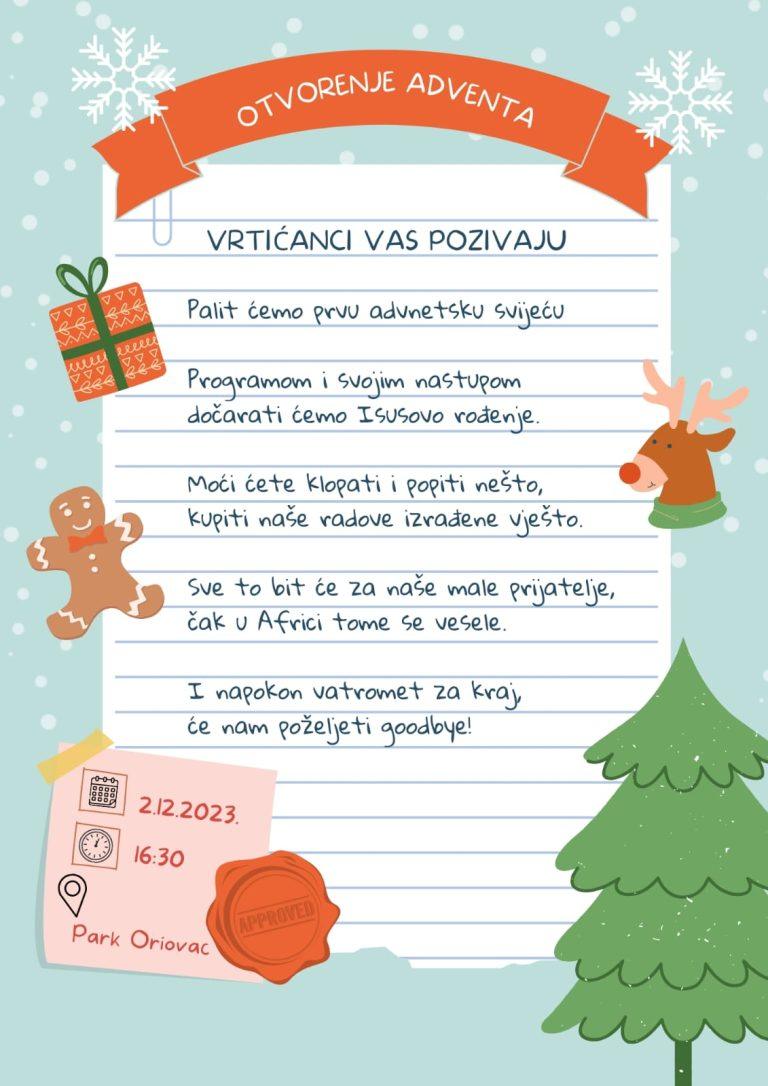 OTVORENJE ADVENTA
VRTIĆANCI VAS POZIVAJU
Palit ćemo prvu advnetsku svijeću
Programom i svojim nastupom
dočarati ćemo Isusovo rođenje.
Moći ćete klopati i popiti nešto,
kupiti naše radove izrađene vješto.
Sve to bit će za naše male prijatelje,
čak u Africi tome se vesele.
I napokon vatromet za kraj,
će nam poželjeti goodbye!
2.12.2023.
16:30
Park Oriovac
APPROVED